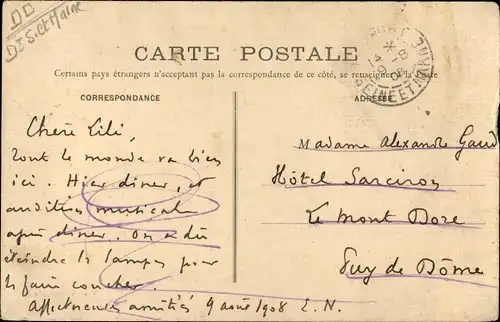 DD
Dt S. et Marne
CARTE POSTALE
Certains pays étrangers n'acceptent pas la correspondance de ce côté, se renseigner à la Poste
CORRESPONDANCE
ADRESSE
SEINE ET MARNE
Chère Lili,
Tout le monde va bien
ici. Hier dîner, et
audition musicale
après dîner. On a dû
éteindre les lampes pour
les faire coucher.
Affectueuses amitiés 9 août 1908 E. N.
Madame Alexandre
Hôtel Sarciron
Le Mont Dore
Puy de Dôme